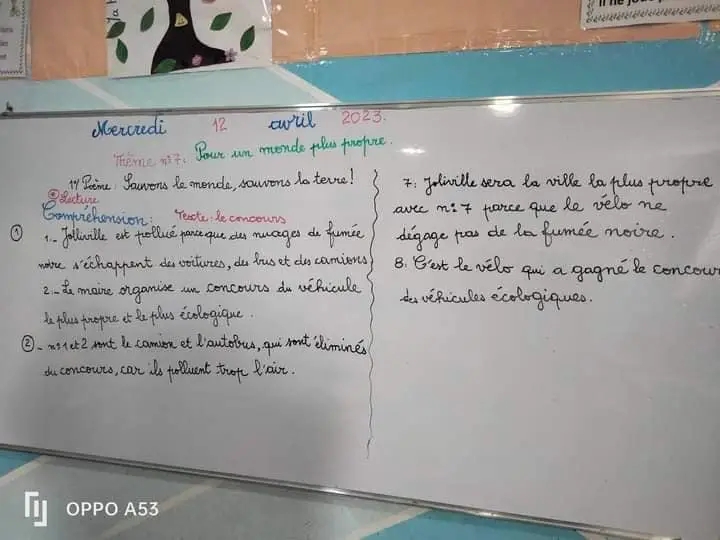 il ne jou
Mercredi 12 avril 2023.
Thème n°7: Pour un monde plus propre.
1°/ Poème: Sauvons le monde, sauvons la terre!
Lecture
Compréhension: Texte: le concours
① 1.- Jolliville est pollué parce que des nuages de fumée
noire s'échappent des voitures, des bus et des camions
2.- Le maire organise un concours du véhicule
le plus propre et le plus écologique.
② - n°1 et 2 sont le camion et l'autobus, qui sont éliminés
du concours, car ils polluent trop l'air.
7: Joliville sera la ville la plus propre
avec n°7 parce que le vélo ne
dégage pas de la fumée noire.
8: C'est le vélo qui a gagné le concour
des véhicules écologiques.
OPPO A53